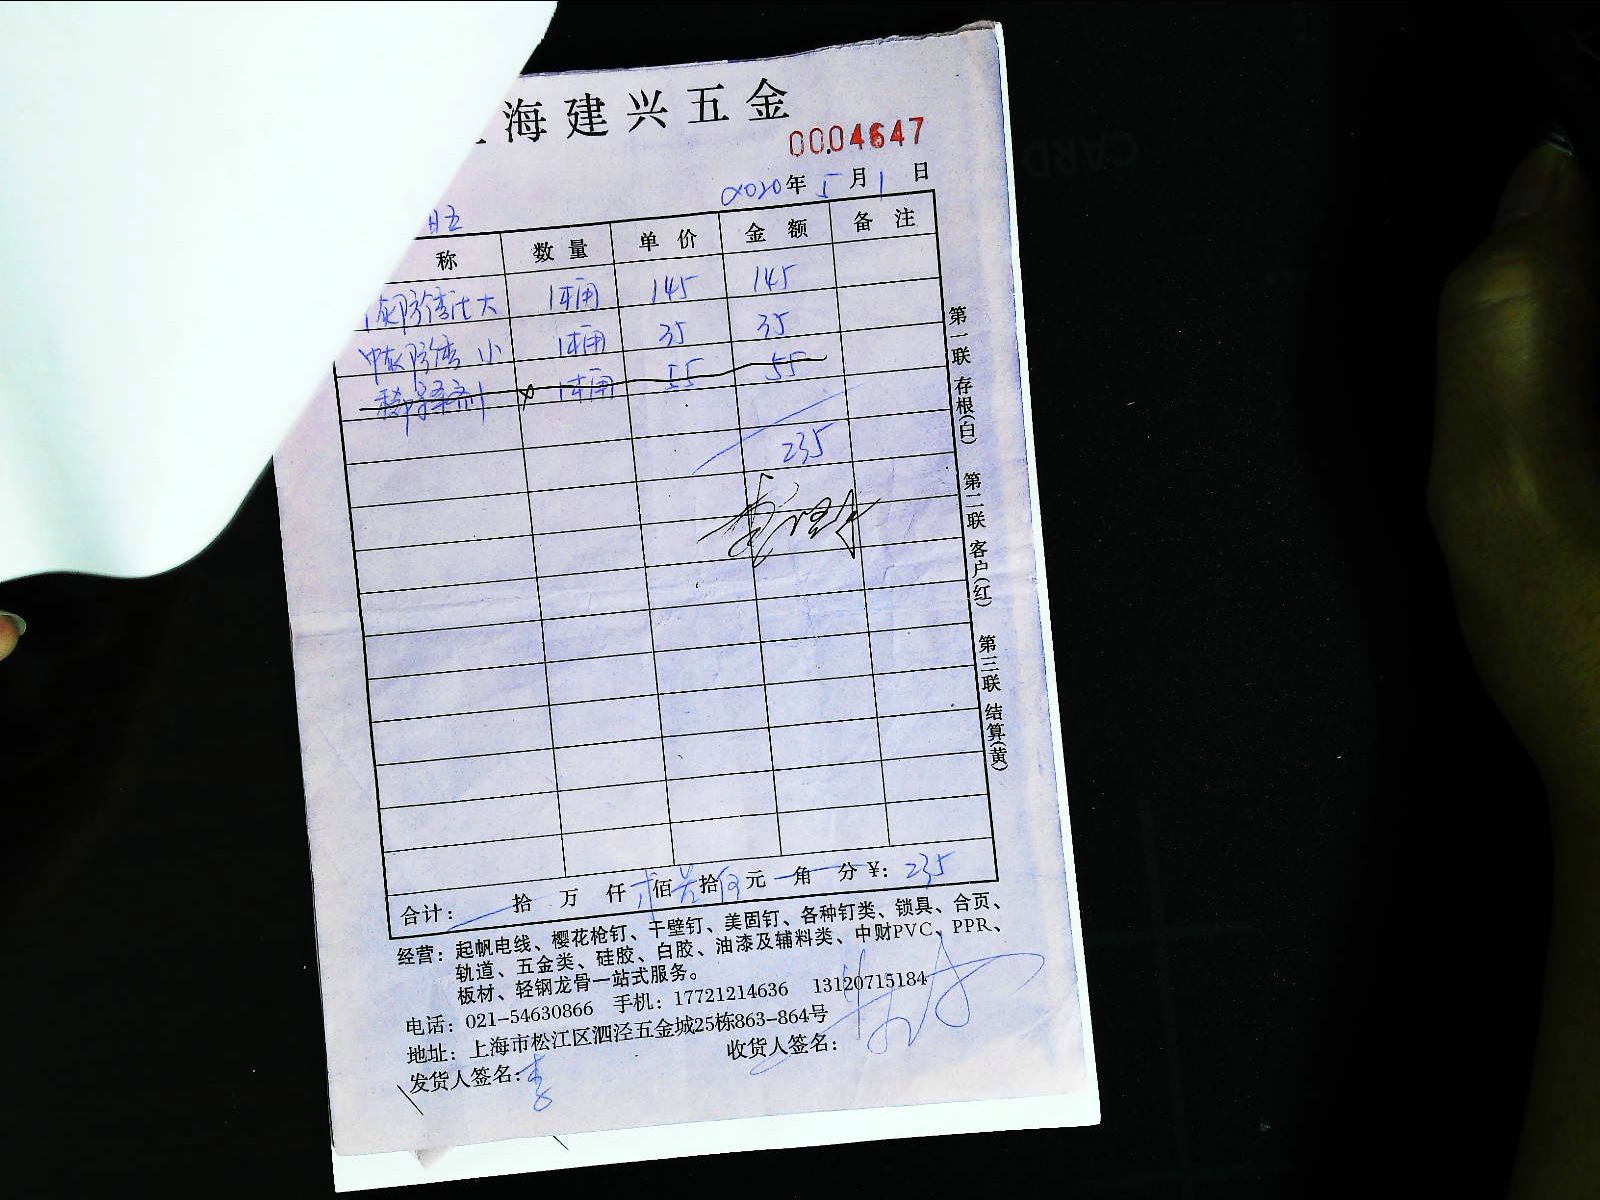 海建兴五金
0004647
2020年5月1日
称 数量 单价 金额 备注
大 1桶 145 145
中灰防锈 小 1桶 35 35
稀释剂 1桶 55 55
235
合计： 拾 万 仟 贰佰 叁拾 伍元 角 分 ¥: 235
经营：起帆电线、樱花枪钉、干壁钉、美固钉、各种钉类、锁具、合页、
轨道、五金类、硅胶、白胶、油漆及辅料类、中财PVC、PPR、
板材、轻钢龙骨一站式服务。
电话：021-54630866 手机：17721214636 13120715184
地址：上海市松江区泗泾五金城25栋863-864号
发货人签名：李 收货人签名：
第一联 存根(白) 第二联 客户(红) 第三联 结算(黄)
CARD